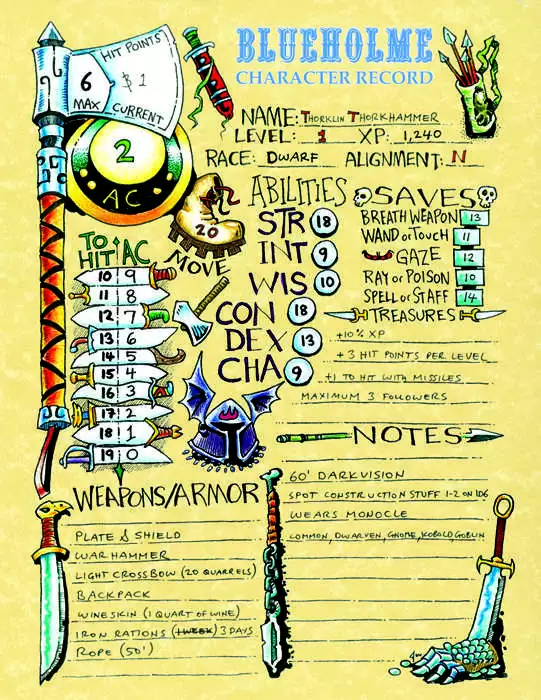 BLUEHOLME
CHARACTER RECORD
HIT POINTS
6
MAX
1
CURRENT
2
AC
NAME: THORKLIN THORKHAMMER
LEVEL: 1 XP: 1,240
RACE: DWARF ALIGNMENT: N
20
MOVE
ABILITIES
STR 18
INT 9
WIS 10
CON 18
DEX 13
CHA 9
SAVES
BREATH WEAPON 13
WAND OR TOUCH 11
GAZE 12
RAY OR POISON 10
SPELL OR STAFF 14
TREASURES
+10% XP
+3 HIT POINTS PER LEVEL
+1 TO HIT WITH MISSILES
MAXIMUM 3 FOLLOWERS
TO HIT AC
10 9
11 8
12 7
13 6
14 5
15 4
16 3
17 2
18 1
19 0
NOTES
60' DARKVISION
SPOT CONSTRUCTION STUFF 1-2 ON 1D6
WEARS MONOCLE
COMMON, DWARVEN, GNOME, KOBOLD, GOBLIN
WEAPONS/ARMOR
PLATE & SHIELD
WARHAMMER
LIGHT CROSSBOW (20 QUARRELS)
BACKPACK
WINESKIN (1 QUART OF WINE)
IRON RATIONS (1 WEEK) 3 DAYS
ROPE (50')